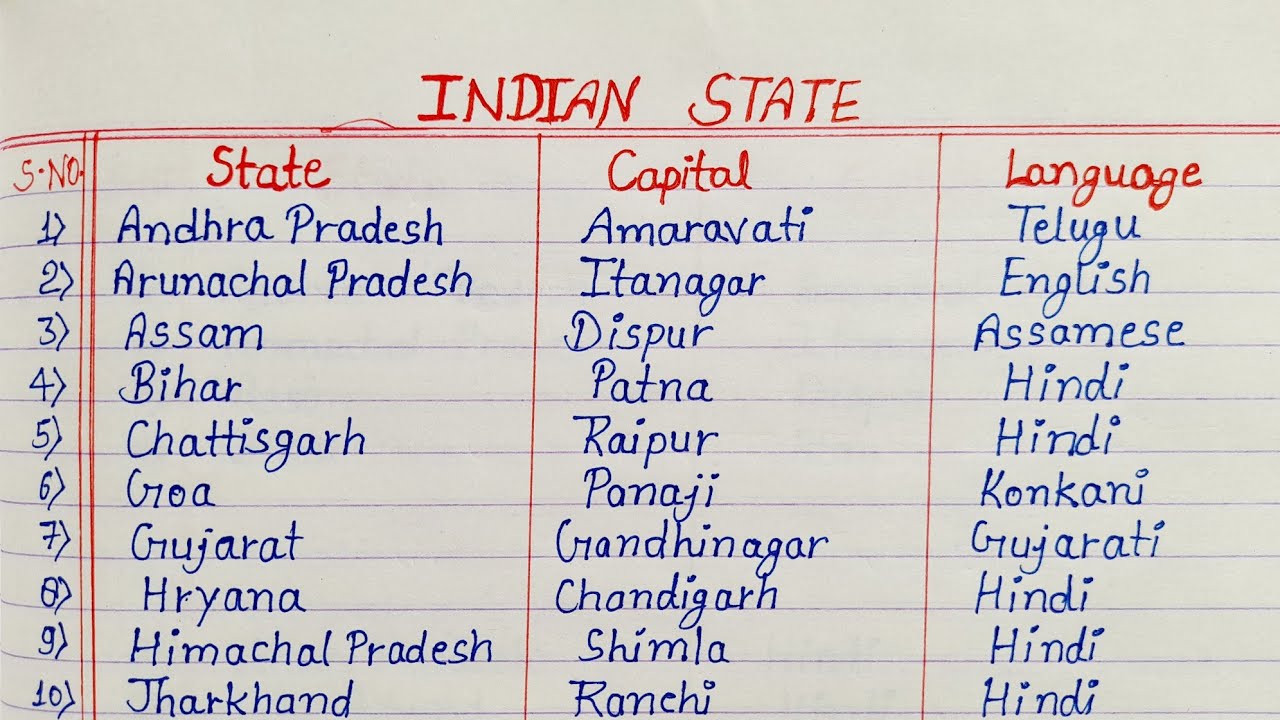 INDIAN STATE
S.NO. State Capital Language
1) Andhra Pradesh Amaravati Telugu
2) Arunachal Pradesh Itanagar English
3) Assam Dispur Assamese
4) Bihar Patna Hindi
5) Chattisgarh Raipur Hindi
6) Goa Panaji Konkani
7) Gujarat Gandhinagar Gujarati
8) Hryana Chandigarh Hindi
9) Himachal Pradesh Shimla Hindi
10) Jharkhand Ranchi Hindi